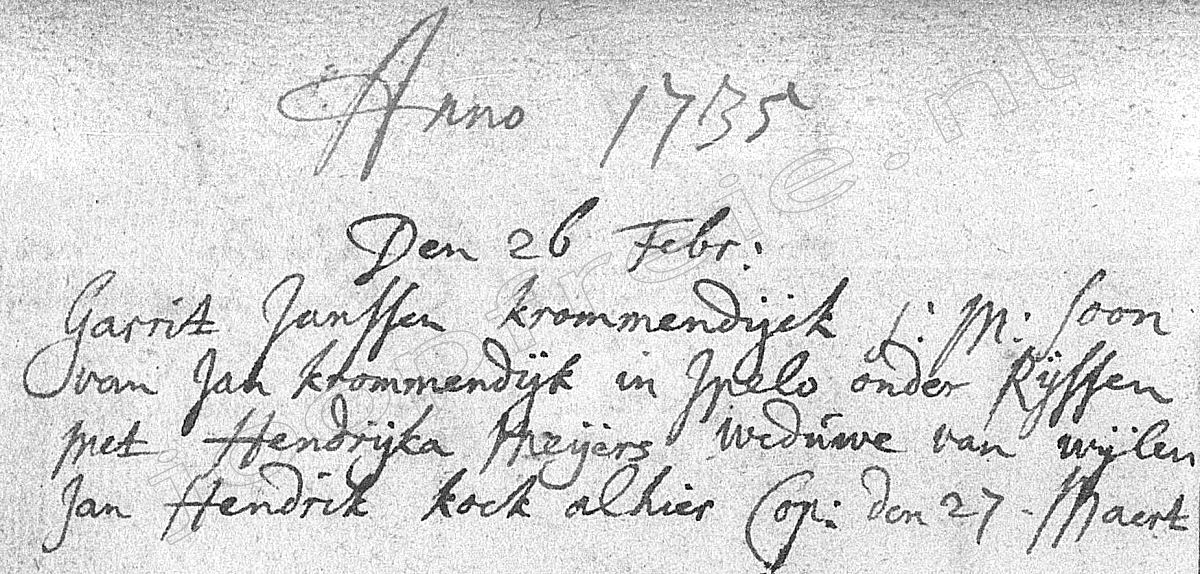 Anno 1735
Den 26 Febr:
Garrit Janssen krommendijck j: M: soon
van Jan krommendijk in Ypelo onder Rijssen
met Hendrijka Meijers weduwe van wijlen
Jan Hendrik kock alhier Cop: den 27 Maert